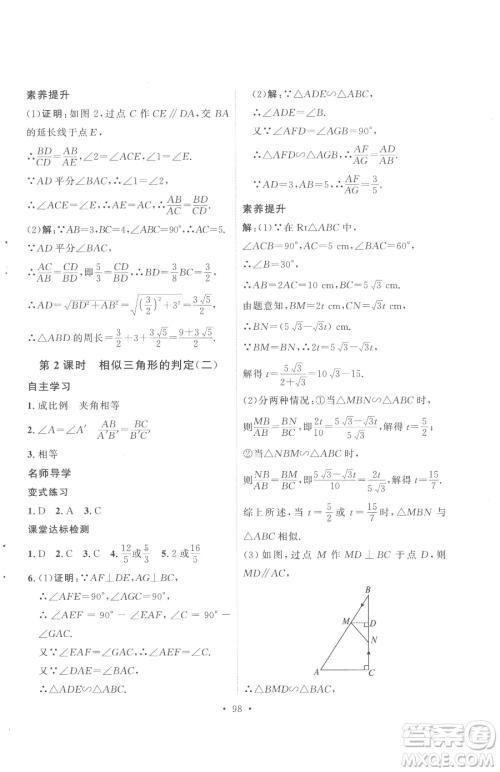 素养提升
(1)证明:如图 2,过点 C 作 CE∥DA,交 BA
的延长线于点 E,
∴BD/CD=AB/AE,∠2=∠ACE,∠1=∠E.
∵AD 平分∠BAC,∴∠1=∠2.
∴∠ACE=∠E.∴AE=AC.∴AB/AC=BD/CD.
(2)解:∵AB=3,BC=4,∠ABC=90°,∴AC=5.
∴AC/AB=CD/BD,即5/3=CD/BD.∴BD=3/8 BC=3/2.
∴AD=√(BD²+AB²)=√((3/2)²+3²)=3√5/2.
∴△ABD 的周长=3/2+3+3√5/2=(9+3√5)/2.
第 2 课时 相似三角形的判定(二)
自主学习
1. 成比例 夹角相等
2. ∠A=∠A′ AB/A′B′=BC/B′C′
3. 相等
名师导学
变式练习
1. D 2. A 3. D
课堂达标检测
1. D 2. B 3. C 4. 12/5或5/3 5. 2或16/5
6. (1)证明:∵AF⊥DE,AG⊥BC,
∴∠AFE=90°,∠AGC=90°.
∴∠AEF=90°-∠EAF,∠C=90°-
∠GAC.
又∵∠EAF=∠GAC,∴∠AEF=∠C.
又∵∠DAE=∠BAC,
∴△ADE∽△ABC.
(2)解:∵△ADE∽△ABC,
∴∠ADE=∠B.
又∵∠AFD=∠AGB=90°,
∴△AFD∽△AGB.∴AF/AG=AD/AB.
∵AD=3,AB=5,∴AF/AG=3/5.
素养提升
解:(1)∵在 Rt△ABC 中,
∠ACB=90°,AC=5 cm,∠BAC=60°,
∴∠B=30°.
∴AB=2AC=10 cm,BC=5√3 cm.
由题意知,BM=2t,CN=√3t,
∴BN=(5√3-√3t)cm.
∵BM=BN,∴2t=5√3-√3t,
解得 t=5√3/(2+√3)=10√3-15.
(2)分两种情况:①当△MBN∽△ABC 时,
则MB/AB=BN/BC,即2t/10=(5√3-√3t)/5√3,解得 t=5/2.
②当△NBM∽△ABC 时,
则NB/AB=BM/BC,即(5√3-√3t)/10=2t/5√3,解得 t=15/7.
综上所述,当 t=5/2或 t=15/7时,△MBN 与
△ABC 相似.
(3)如图,过点 M 作 MD⊥BC 于点 D,
B
M
D
N
A
C
∴MD∥AC.∴△BMD∽△BAC.
· 98 ·